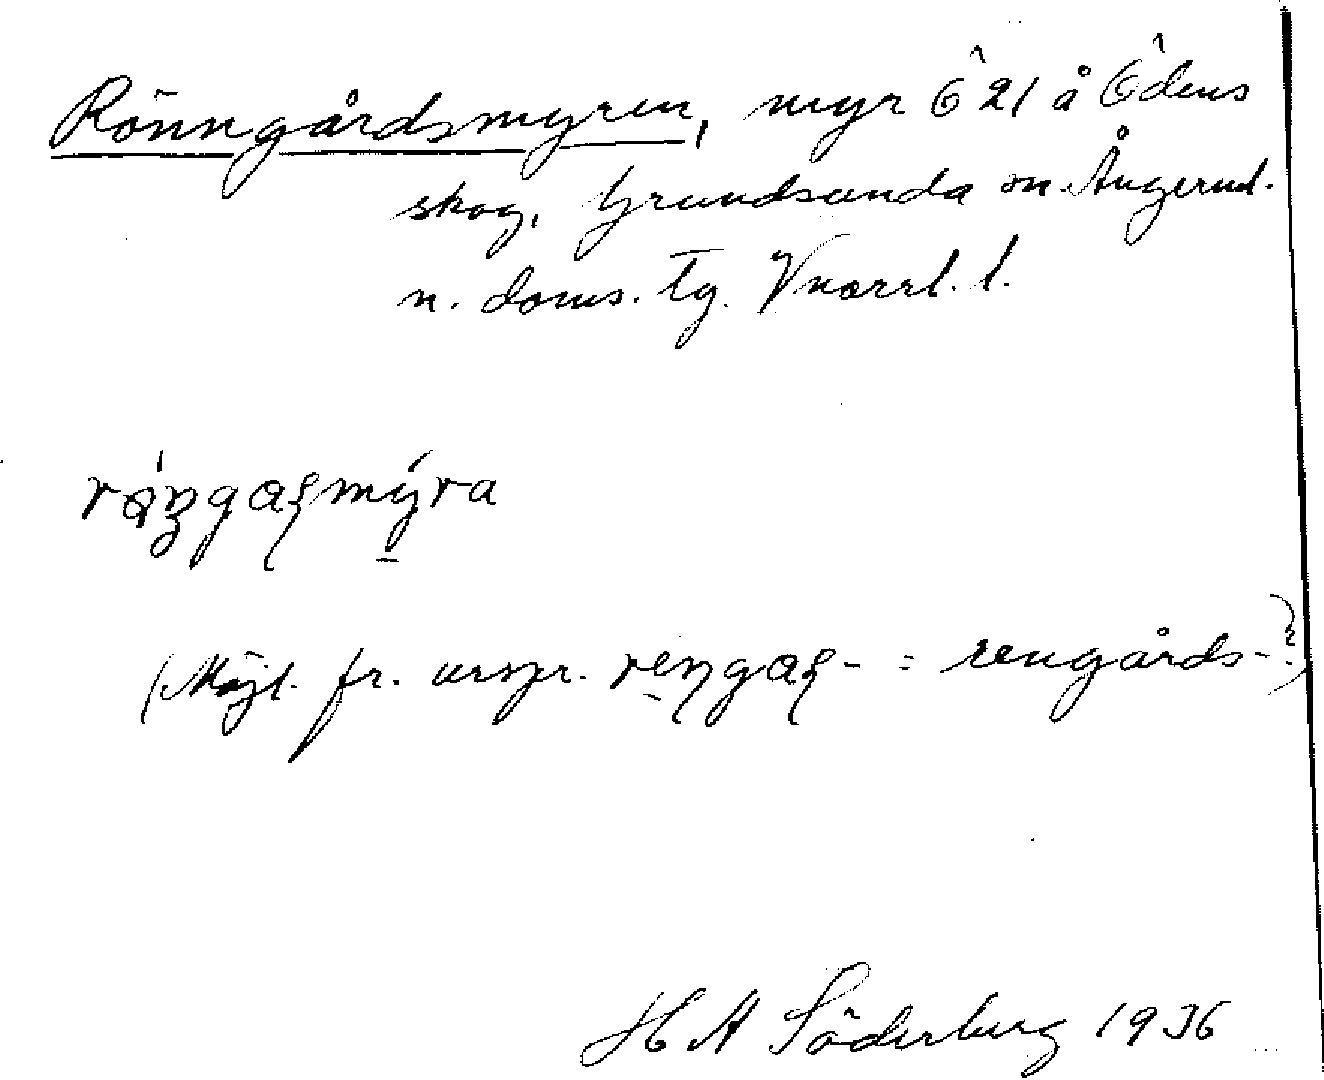 Rönngårdsmyren, myr Ö 21 å Ödens
skog, Grundsunda sn. Ångerml.
n. doms. tg. Vnorrl. l.
(Möjl. fr. urspr. - = rengårds-?)
H A Söderberg 1936